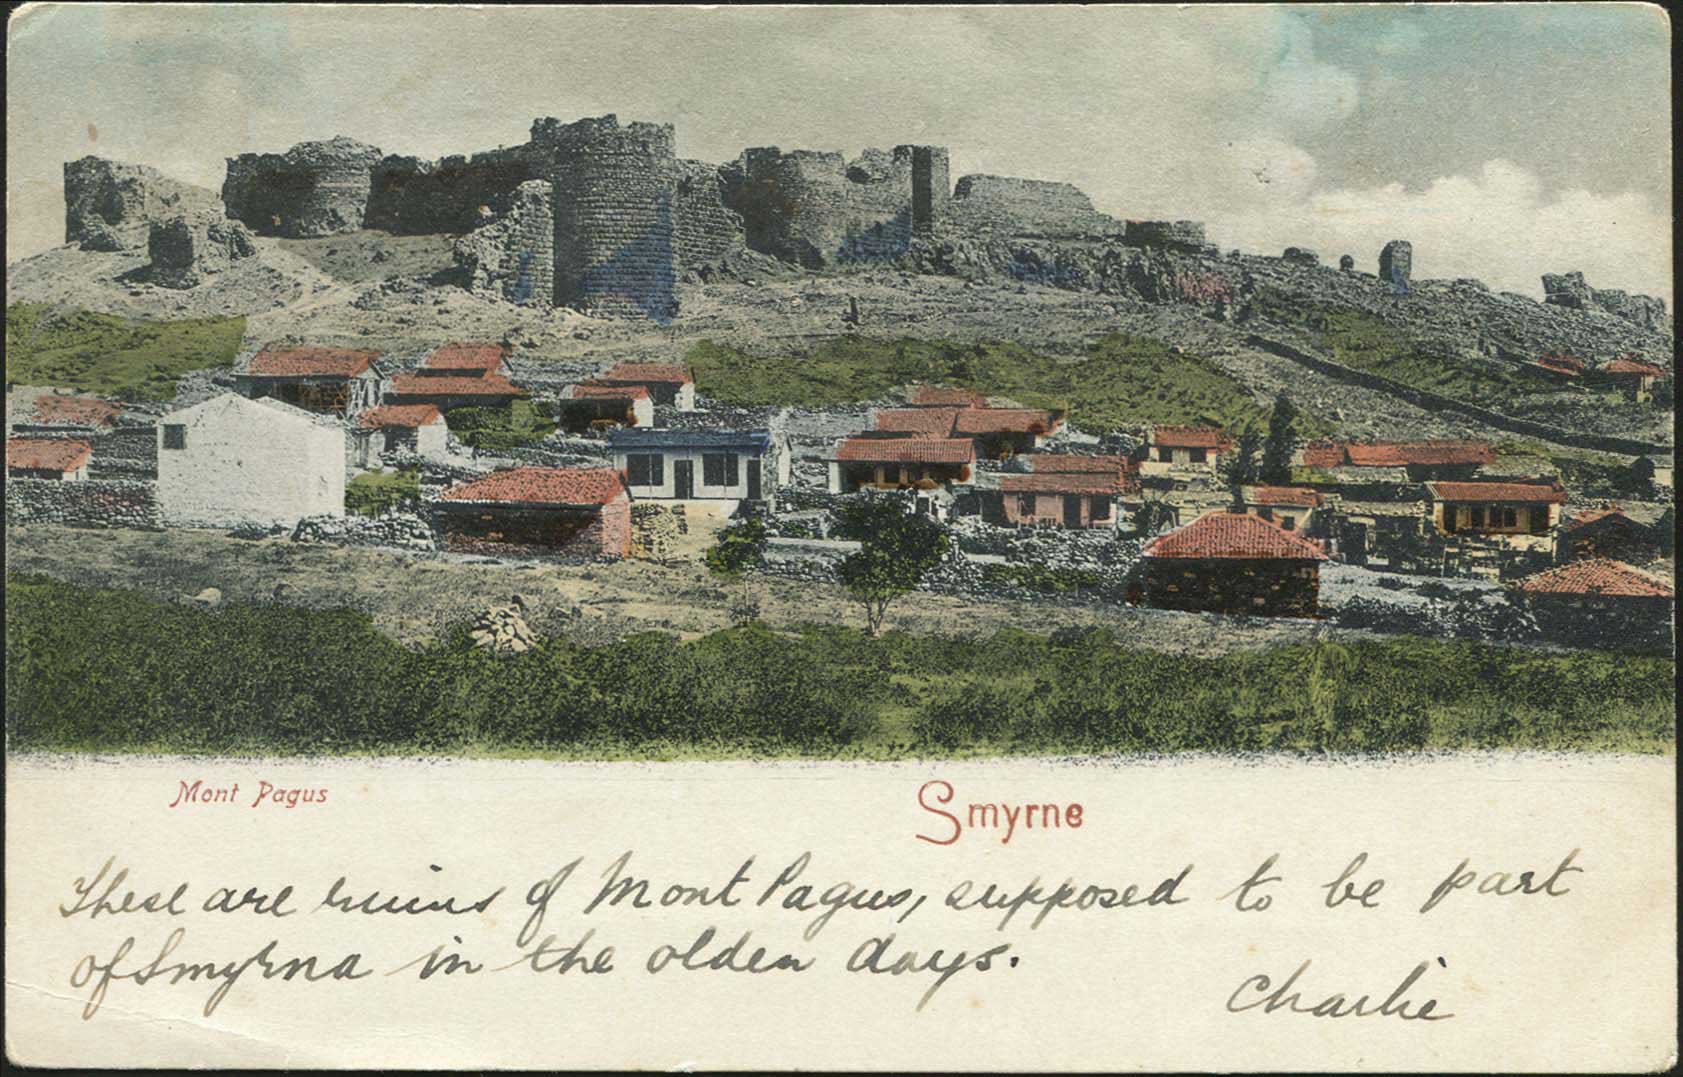 Mont Pagus
Smyrne
These are ruins of Mont Pagus, supposed to be part
of Smyrna in the olden days.
Charlie